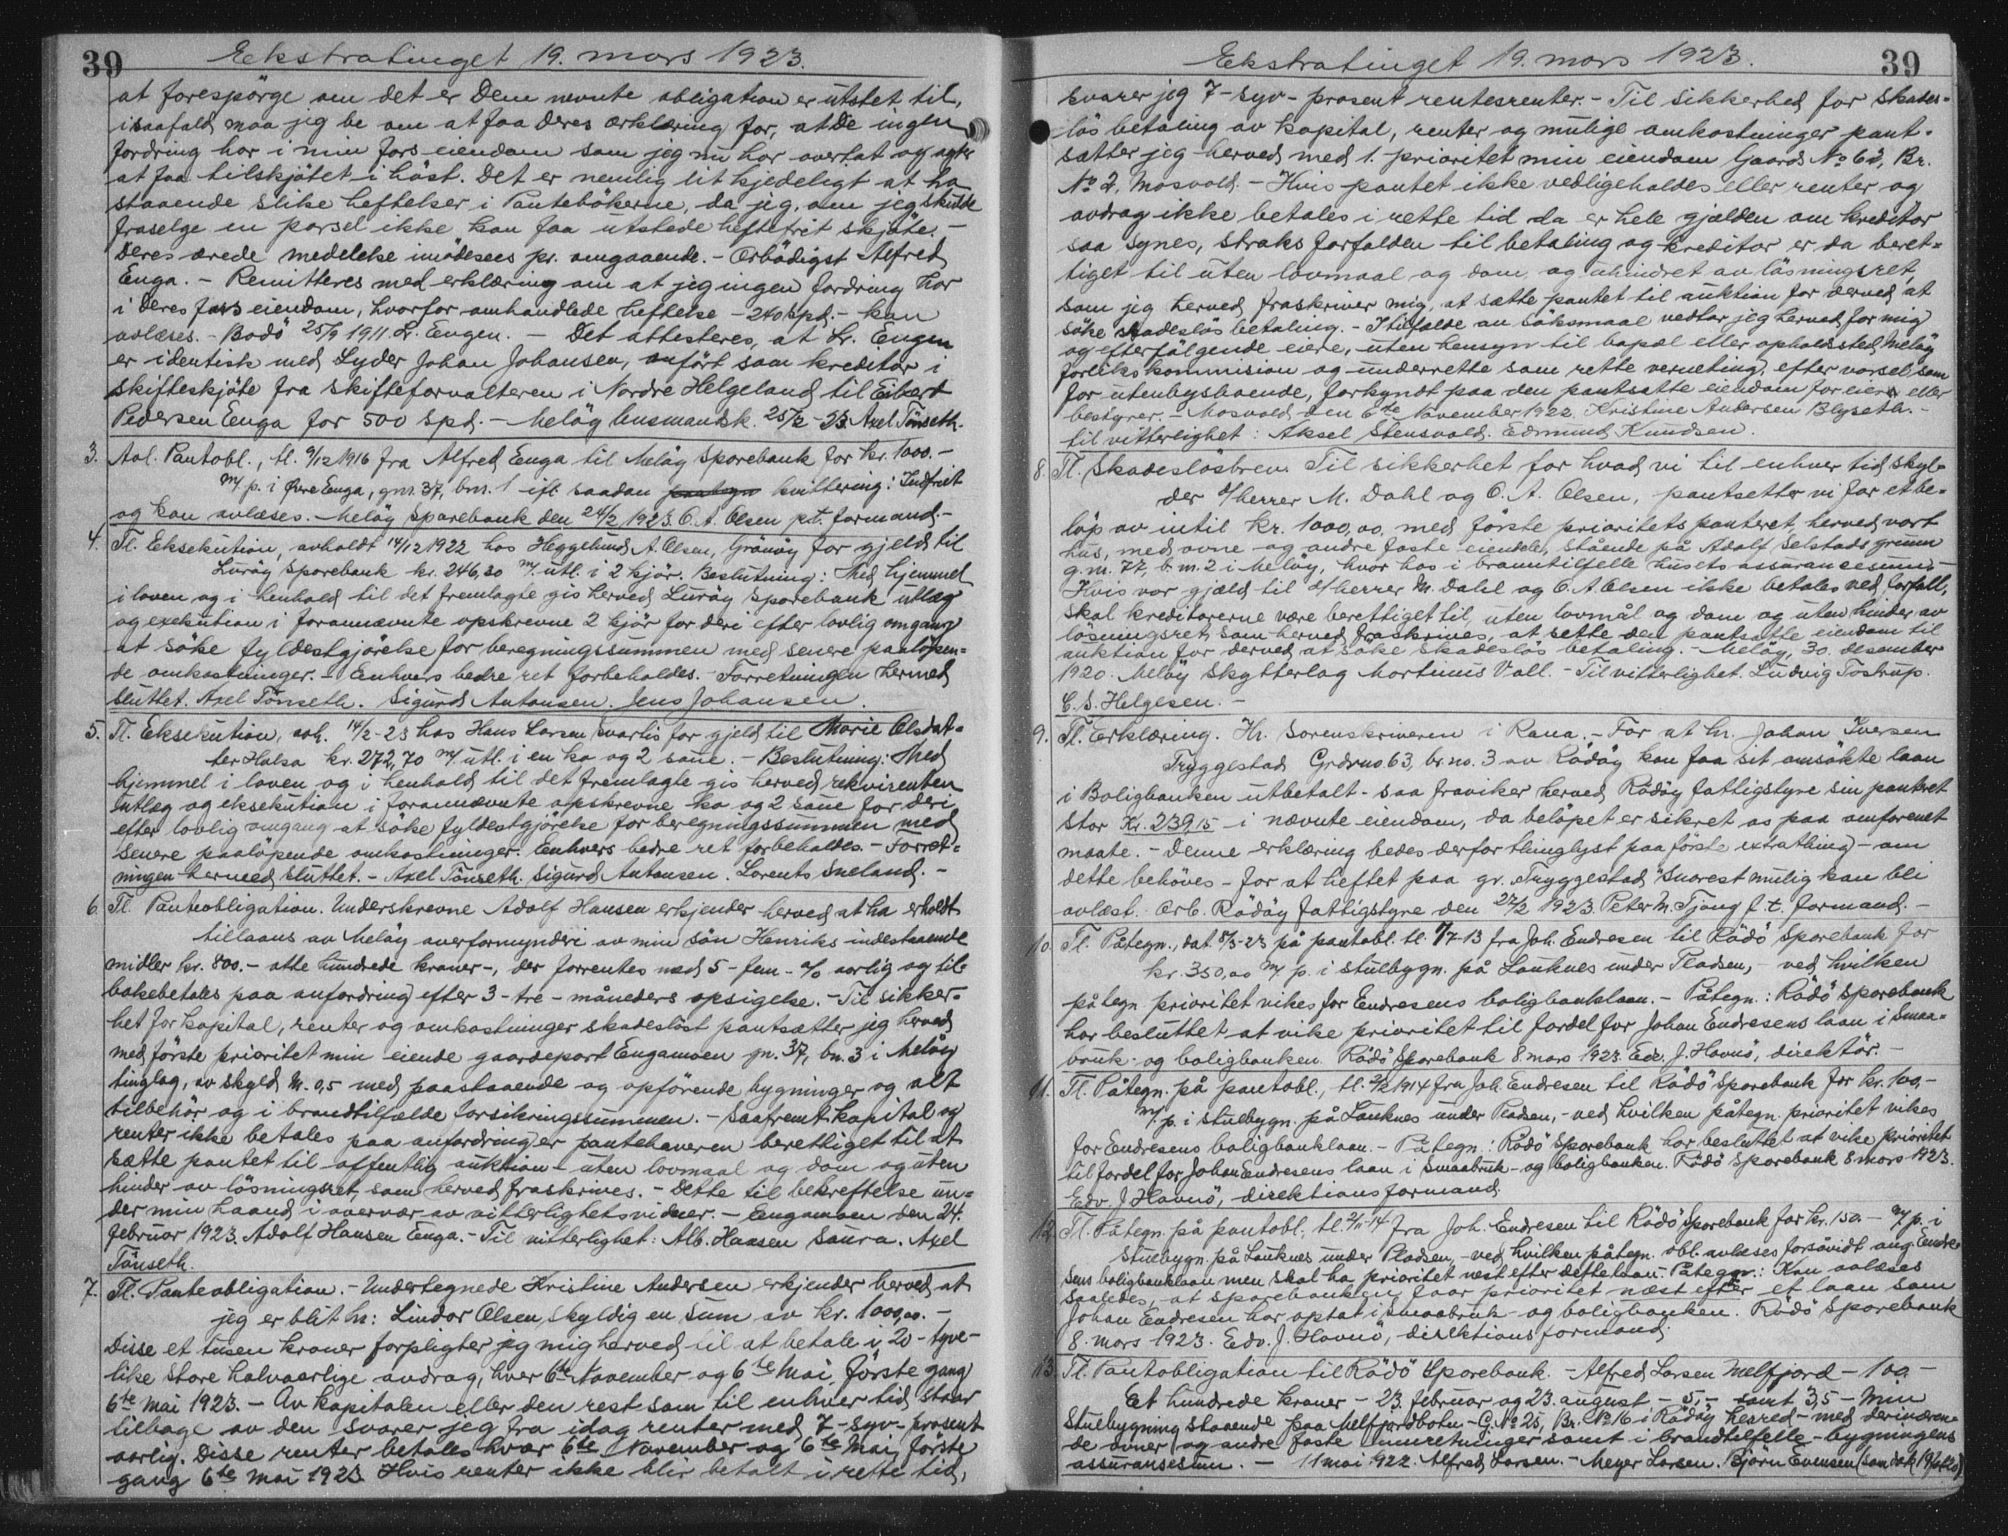 39
Ekstratinget 19. mars 1923.
at forespørge om det er Dem nevnte obligation er utstet til,
isaafald maa jeg be om at faa Deres erklæring for, at De ingen
fordring har i min fars eiendom som jeg nu har overtat og agter
at faa tilskjøtet i høst. Det er nemlig lit kjedeligt at ha
staaende slike heftelser i Pantebøkerne, da jeg, om jeg skulde
fraselge en parsel ikke kan faa utstede heftefrit skjøte. -
Deres ærede meddelelse imødesees pr. omgaaende. - Ærbødigst Alfred
Enga. - Remitteres med erklæring om at jeg ingen fordring har
i Deres fars eiendom, hvorfor omhandlede heftelse - 240 spd. - kan
avlæses. - Bodø 25/9 1911 L. Engen. - Det attesteres, at L. Engen
er identisk med Lyder Johan Johansen, anført som kreditor i
skifteskjøte fra skifteforvalteren i Nordre Helgeland til Eibert
Pedersen Enga for 500 spd. - Meløy lensmandsk. 25/2-23 Axel Tønseth.
3. Avl. Pantobl., tl. 9/12 1916 fra Alfred Enga til Meløy Sparebank for kr. 1000.-
m/ p. i Øvre Enga, gnr. 37, bnr. 1 ifl. saadan kvittering: Indfriet
og kan avlæses. Meløy Sparebank den 24/2 1923. O. A. Olsen p.t. formand.-
4. Tl. Eksekution, avholdt 14/12 1922 hos Heggelund A. Olsen, Grønøy for gjeld til
Lurøy Sparebank kr. 246,30 m/ utl. i 2 kjør. Beslutning: Med hjemmel
i loven og i henhold til det fremlagte gis herved Lurøy Sparebank utlæg
og exekution i forannævnte opskrevne 2 kjør for deri efter lovlig omgang
at søke fyldestgjørelse for beregningssummen med senere paaløpen-
de omkostninger. - Enhvers bedre ret forbeholdes. - Forretningen hermed
sluttet. Axel Tønseth. Sigurd Antonsen. Jens Johansen.
5. Tl. Eksekution, avh. 14/2-23 hos Hans Larsen Svartis for gjeld til Marie Olsdat-
ter Halsa kr. 272,70 m/ utl. i en ko og 2 saue. - Beslutning: Med
hjemmel i loven og i henhold til det fremlagte gis herved rekvirenten
utlæg og eksekution i forannævnte opskrevne ko og 2 saue for deri
efter lovlig omgang at søke fyldestgjørelse for beregningssummen med
senere paaløpende omkostninger. Enhvers bedre ret forbeholdes. - Forret-
ningen hermed sluttet. - Axel Tønseth. Sigurd Antonsen. Lorents Sneland. -
6. Tl. Panteobligation. Underskrevne Adolf Hansen erkjender herved at ha erholdt
tillaans av Meløy overformynderi av min søn Henriks indestaaende
midler kr. 800.- atte hundrede kroner -, der forrentes med 5 - fem - o/o aarlig og til-
bakebetales paa anfordring efter 3 - tre - måneders opsigelse. - Til sikker-
het for kapital, renter og omkostninger skadesløst pantsætter jeg herved
med første prioritet min eiende gaardepart Engamoen gn. 37, bn. 3 i Meløy
tinglag, av skyld M. 0,5 med paastaaende og opførende bygninger og alt
tilbehør og i brandtilfælde forsikringssummen. - Saafremt kapital og
renter ikke betales paa anfordring er pantehaveren berettiget til at
sætte pantet til offentlig auktion - uten lovmaal og dom og uten
hinder av løsningsret, som herved fraskrives. - Dette til bekreftelse un-
der min haand i overvær av vitterlighetsvidner. - Engamoen den 24.
februar 1923. Adolf Hansen Enga. - Til vitterlighet: Alb. Hansen Saura. Axel
Tønseth.
7. Tl. Panteobligation. - Undertegnede Kristine Andersen erkjender herved at
jeg er blit hr: Lindor Olsen, skyldig en sum av kr. 1000,00. -
Disse et tusen kroner forpligter jeg mig herved til at betale i 20 - tyve -
like store halvaarlige avdrag, hver 6te November og 6te Mai, første gang
6te mai 1923. - Av kapitalen eller den rest som til enhver tid staar
tilbage av den svarer jeg fra idag renter med 7 - syv - prosent
aarlig. Disse renter betales hver 6te November og 6te Mai, første
gang 6te mai 1923. Hvis renter ikke blir betalt i rette tid,
Ekstratinget 19. mars 1923.
39
svarer jeg 7 - syv - prosent rentesrenter. - Til sikkerhed for skades-
løs betaling av kapital, renter og mulige omkostninger pant-
sætter jeg herved med 1. prioritet min eiendom Gaards No 63, Br.
No 2, Mosvold. - Hvis pantet ikke vedligeholdes eller renter og
avdrag ikke betales i rette tid da er hele gjælden om kreditor
saa synes, straks forfalden til betaling og kreditor er da beret-
tiget til uten lovmaal og dom og uhindret av løsningsret,
som jeg herved fraskriver mig, at sætte pantet til auktion for derved at
søke skadesløs betaling. - I tilfælde av søksmaal vedtar jeg herved for mig
og efterfølgende eiere, uten hensyn til bopæl eller opholdssted, Meløy
forlikskommision og underrette som rette verneting, efter varsel som
for utenbysboende, forkyndt paa den pantsatte eiendom for eier eller
bestyrer. - Mosvold den 6te November 1922. Kristine Andersen Blyseth. -
til vitterlighet: Aksel Stensvold. Edmund Knudsen.
8. Tl. Skadesløsbrev. Til sikkerhet for hvad vi til enhver tid skyl-
der d/herrer M. Dahl og O. A. Olsen, pantsetter vi for et be-
løp av intil kr. 1000,00, med første prioritets panteret herved vort
hus, med ovne og andre faste eiendele, stående på Adolf Selstads grunn
g.nr. 77, b.nr. 2 i Meløy, hvor hos i branntilfelle husets assurancesum. -
Hvis vor gjæld til d/herrer M. Dahl og O. A. Olsen ikke betales ved forfall,
skal kreditorerne være berettiget til, uten lovmål og dom og uten hinder av
løsningsret, som herved fraskrives, at sette den pantsatte eiendom til
auktion for derved at søke skadesløs betaling. - Meløy, 30. desember
1920. Meløy Skytterlag Martinus Vall. - Til vitterlighet. Ludvig Tostrup.
C. S. Helgesen. -
9. Tl. Erklæring. Hr. Sorenskriveren i Rana. - For at hr. Johan Iversen
Tryggestad Grdrno 63, br.no. 3 av Rødøy kan faa sit ansøkte laan
i Boligbanken utbetalt - saa fraviker herved Rødøy fattigstyre sin panteret
stor Kr. 239,15 i nævnte eiendom, da beløpet er sikret os paa omforenet
maate. - Denne erklæring bedes derfor thinglyst paa første extrathing - om
dette behøves - for at heftet paa gr. Tryggestad snarest mulig kan bli
avlæst. Ærb. Rødøy fattigstyre den 27/2 1923. Peter M. Tjong f.t. formand. -
10. Tl. Påtegn., dat. 8/3-23 på pantobl. tl. 7/7-13 fra Joh. Endresen til Rødø Sparebank for
kr. 350,00 m/ p. i stuebygn. på Lauknes under Pladsen, - ved hvilken
påtegn prioritet vikes for Endresens boligbanklaan. - Påtegn.: Rødø Sparebank
har besluttet at vike prioritet til fordel for Johan Endresens laan i Smaa-
bruk- og boligbanken. Rødø Sparebank 8 mars 1923. Edv. J. Havnø, direktør. -
11. Tl. Påtegn. på pantobl., tl. 2/2 1914 fra Joh. Endresen til Rødø Sparebank for kr. 100,-
m/ p. i stuebygn. på Lauknes under Pladsen, - ved hvilken påtegn. prioritet vikes
for Endresens boligbanklaan. - Påtegn.: Rødø Sparebank har besluttet at vike prioritet
til fordel for Johan Endresens laan i Smaabruk- og boligbanken. Rødø Sparebank 8 mars 1923.
Edv. J. Havnø, direktionsformand.
12. Tl. Påtegn. på pantobl., tl. 2/11-14 fra Joh. Endresen til Rødø Sparebank for kr. 150.- m/ p. i
Stuebygn. på Lauknes under Pladsen, - ved hvilken påtegn. obl. avlæses forsåvidt ang. Endre-
sens boligbanklaan men skal ha prioritet næst efter dette laan. Påtegn.: Kan avlæses
saaledes, at sparebanken faar prioritet næst efter et laan som
Johan Endresen har optat i smaabruk- og boligbanken. Rødø Sparebank
8. mars 1923. Edv. J. Havnø, direktionsformand.
13. Tl. Pantobligation til Rødø Sparebank. - Alfred Larsen Melfjord - 100 -
Et hundrede kroner - 23. februar og 23. august - 5,- samt 3,5 - Min
Stuebygning staaende paa Melfjordbotn - G.No 25, Br. No 16 i Rødøy herred - med derinæren-
de ovner og andre faste innretninger samt i brandtilfelle - bygningens
assuransesum. - 11 mai 1922. Alfred Larsen. - Meyer Larsen. Bjørn Evensen